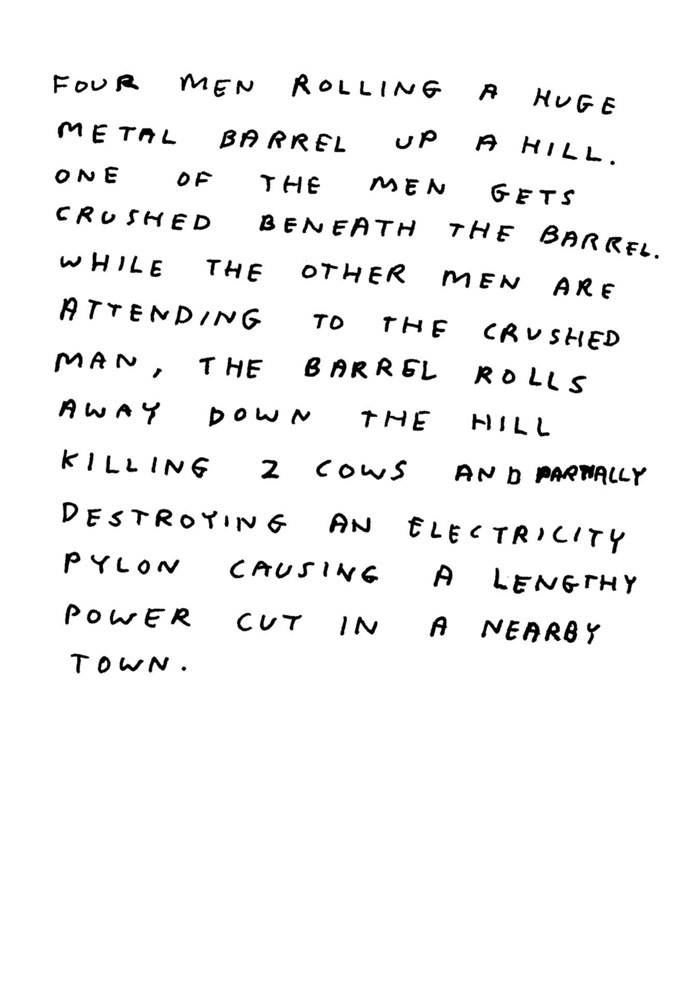 FOUR MEN ROLLING A HUGE
METAL BARREL UP A HILL.
ONE OF THE MEN GETS
CRUSHED BENEATH THE BARREL.
WHILE THE OTHER MEN ARE
ATTENDING TO THE CRUSHED
MAN, THE BARREL ROLLS
AWAY DOWN THE HILL
KILLING 2 COWS AND PARTIALLY
DESTROYING AN ELECTRICITY
PYLON CAUSING A LENGTHY
POWER CUT IN A NEARBY
TOWN.